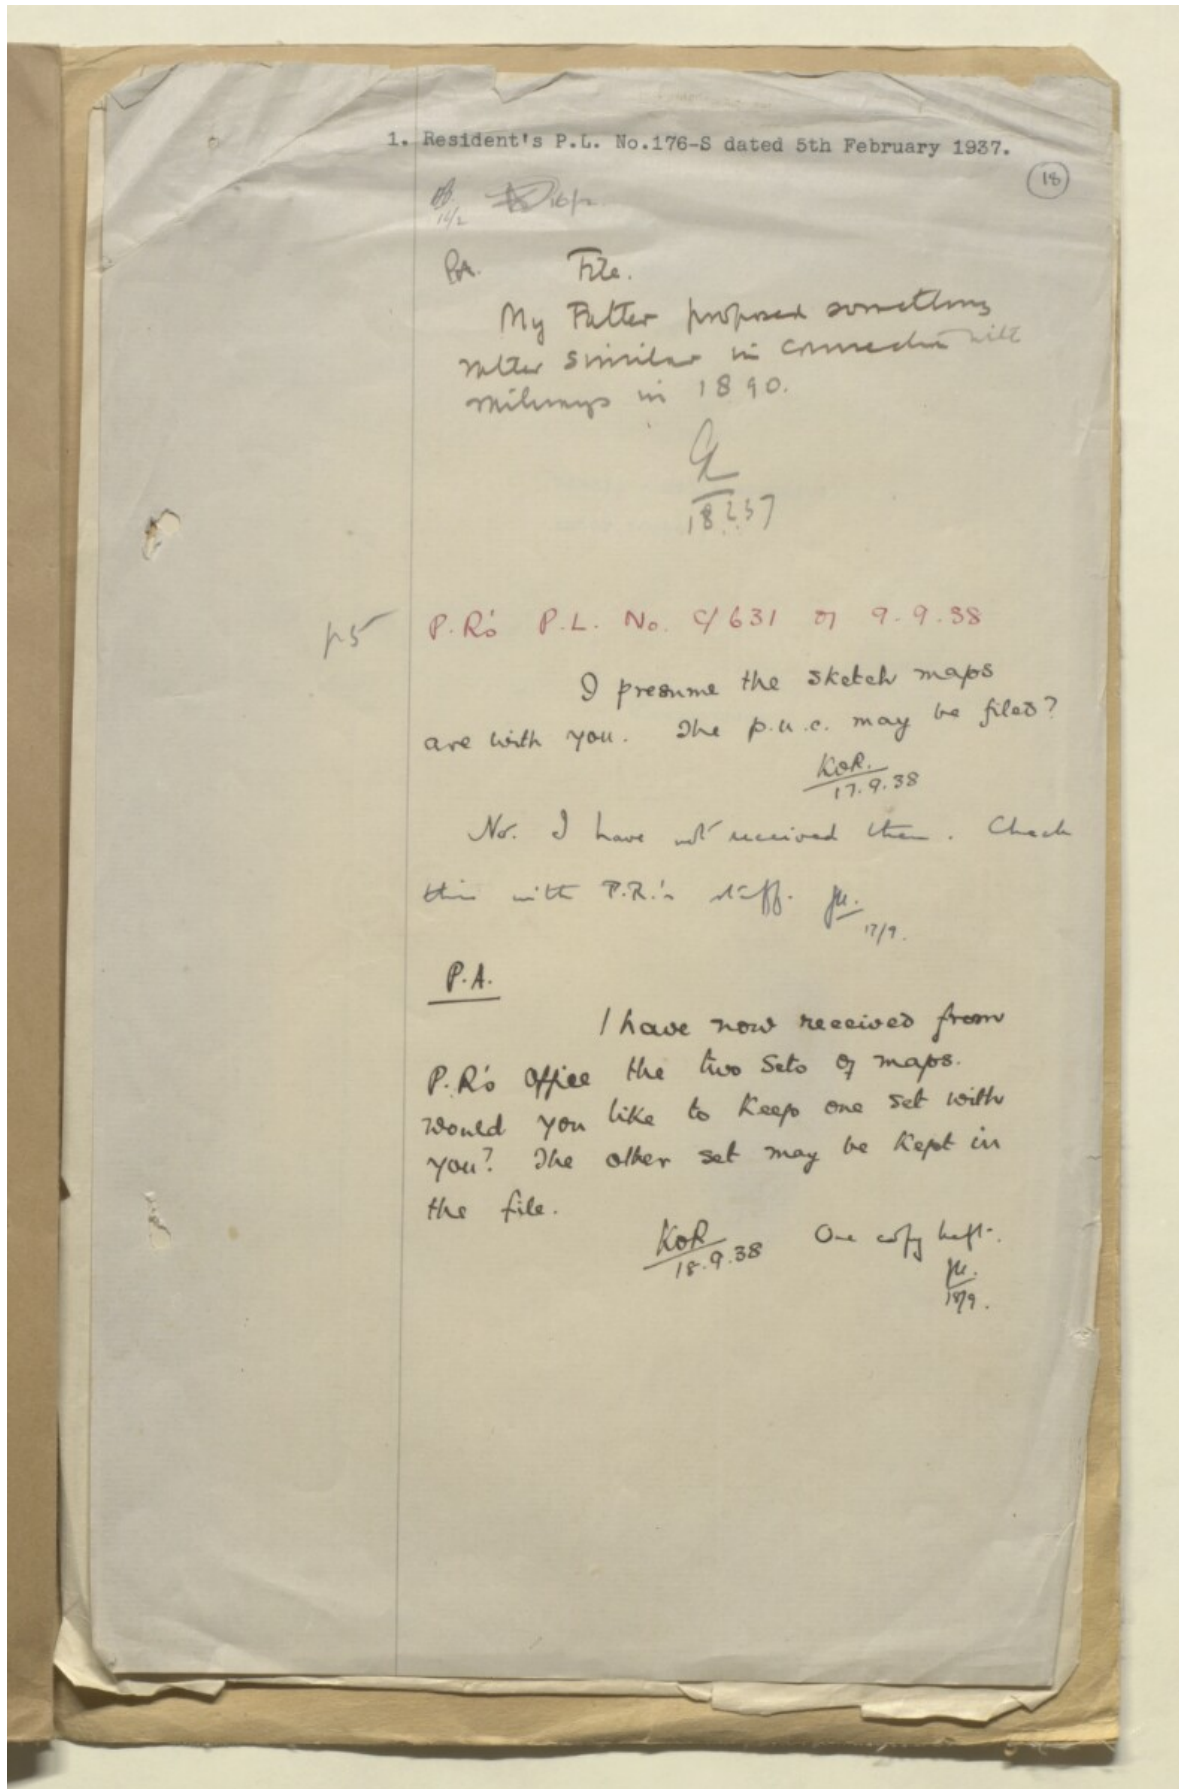 1. Resident's P.L. No.176-S dated 5th February 1937.
18
16/2
P.A. File.
My Father proposed something
rather similar in connection with
railways in 1890.
18.2.37
p5
P.R's P.L. No. C/631 of 9.9.38
I presume the sketch maps
are with you. The p.u.c. may be filed?
KoR.
17.9.38
No. I have not received them. Check
this with P.R.'s staff.
17/9.
P.A.
I have now received from
P.R's Office the two sets of maps.
Would you like to keep one set with
you? The other set may be kept in
the file.
KoR
18.9.38
One copy kept.
18/9.